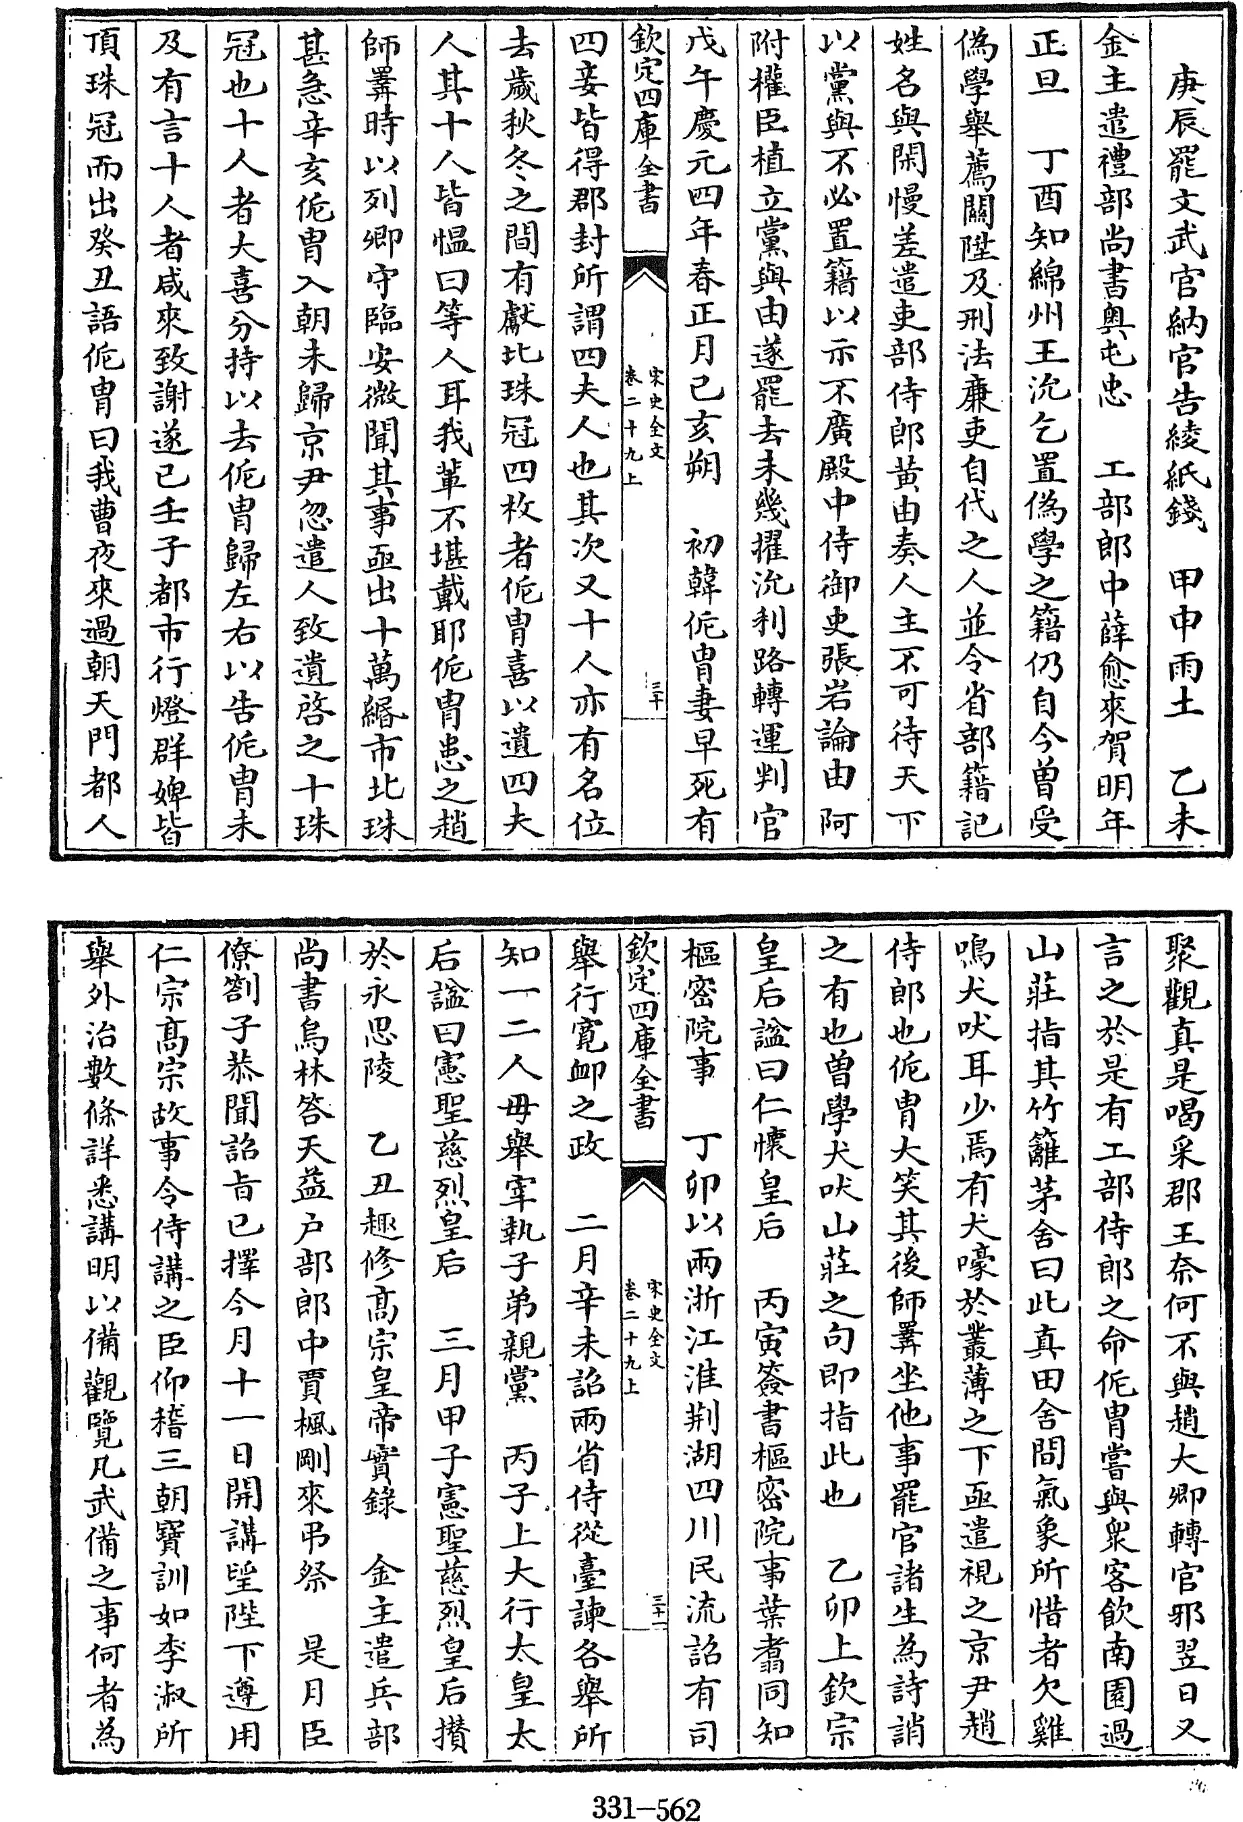 庚辰罷文武官納官告綾紙錢　甲申雨土　乙未
金主遣禮部尚書奧屯忠　工部郎中薛愈來賀明年
正旦　丁酉知綿州王沇乞置偽學之籍仍自今曽受
偽學舉薦關陞及刑法廉吏自代之人並令省部籍記
姓名與閑慢差遣吏部侍郎黄由奏人主不可待天下
以黨與不必置籍以示不廣殿中侍御史張岩論由阿
附權臣植立黨與由遂罷去未幾擢沇利路轉運判官
戊午慶元四年春正月己亥朔　初韓侂胄妻早死有
欽定四庫全書
宋史全文
卷二十九上
三十
四妾皆得郡封所謂四夫人也其次又十人亦有名位
去歲秋冬之間有獻北珠冠四枚者侂胄喜以遺四夫
人其十人皆愠曰等人耳我輩不堪戴耶侂胄患之趙
師㢸時以列卿守臨安微聞其事亟出十萬緡市北珠
甚急辛亥侂胄入朝未歸京尹忽遣人致遺啓之十珠
冠也十人者大喜分持以去侂胄歸左右以告侂胄未
及有言十人者咸來致謝遂已壬子都市行燈群婢皆
頂珠冠而出癸丑語侂胄曰我曹夜來過朝天門都人
聚觀真是喝采郡王奈何不與趙大卿轉官邪翌日又
言之於是有工部侍郎之命侂胄嘗與衆客飲南園過
山莊指其竹籬茅舍曰此真田舍間氣象所惜者欠雞
鳴犬吠耳少焉有犬嘷於叢薄之下亟遣視之京尹趙
侍郎也侂胄大笑其後師㢸坐他事罷官諸生為詩誚
之有也曽學犬吠山莊之句即指此也　乙卯上欽宗
皇后謚曰仁懷皇后　丙寅簽書樞密院事葉翥同知
樞密院事　丁卯以兩浙江淮荆湖四川民流詔有司
欽定四庫全書
宋史全文
卷二十九上
三十一
舉行寛卹之政　二月辛未詔兩省侍從臺諫各舉所
知一二人毋舉宰執子弟親黨　丙子上大行太皇太
后謚曰憲聖慈烈皇后　三月甲子憲聖慈烈皇后攢
於永思陵　乙丑趣修髙宗皇帝實錄　金主遣兵部
尚書烏林答天益户部郎中賈楓剛來弔祭　是月臣
僚劄子恭聞詔旨已擇今月十一日開講望陛下遵用
仁宗髙宗故事令侍講之臣仰稽三朝寶訓如李淑所
舉外治數條詳悉講明以備觀覽凡武備之事何者為
331—562